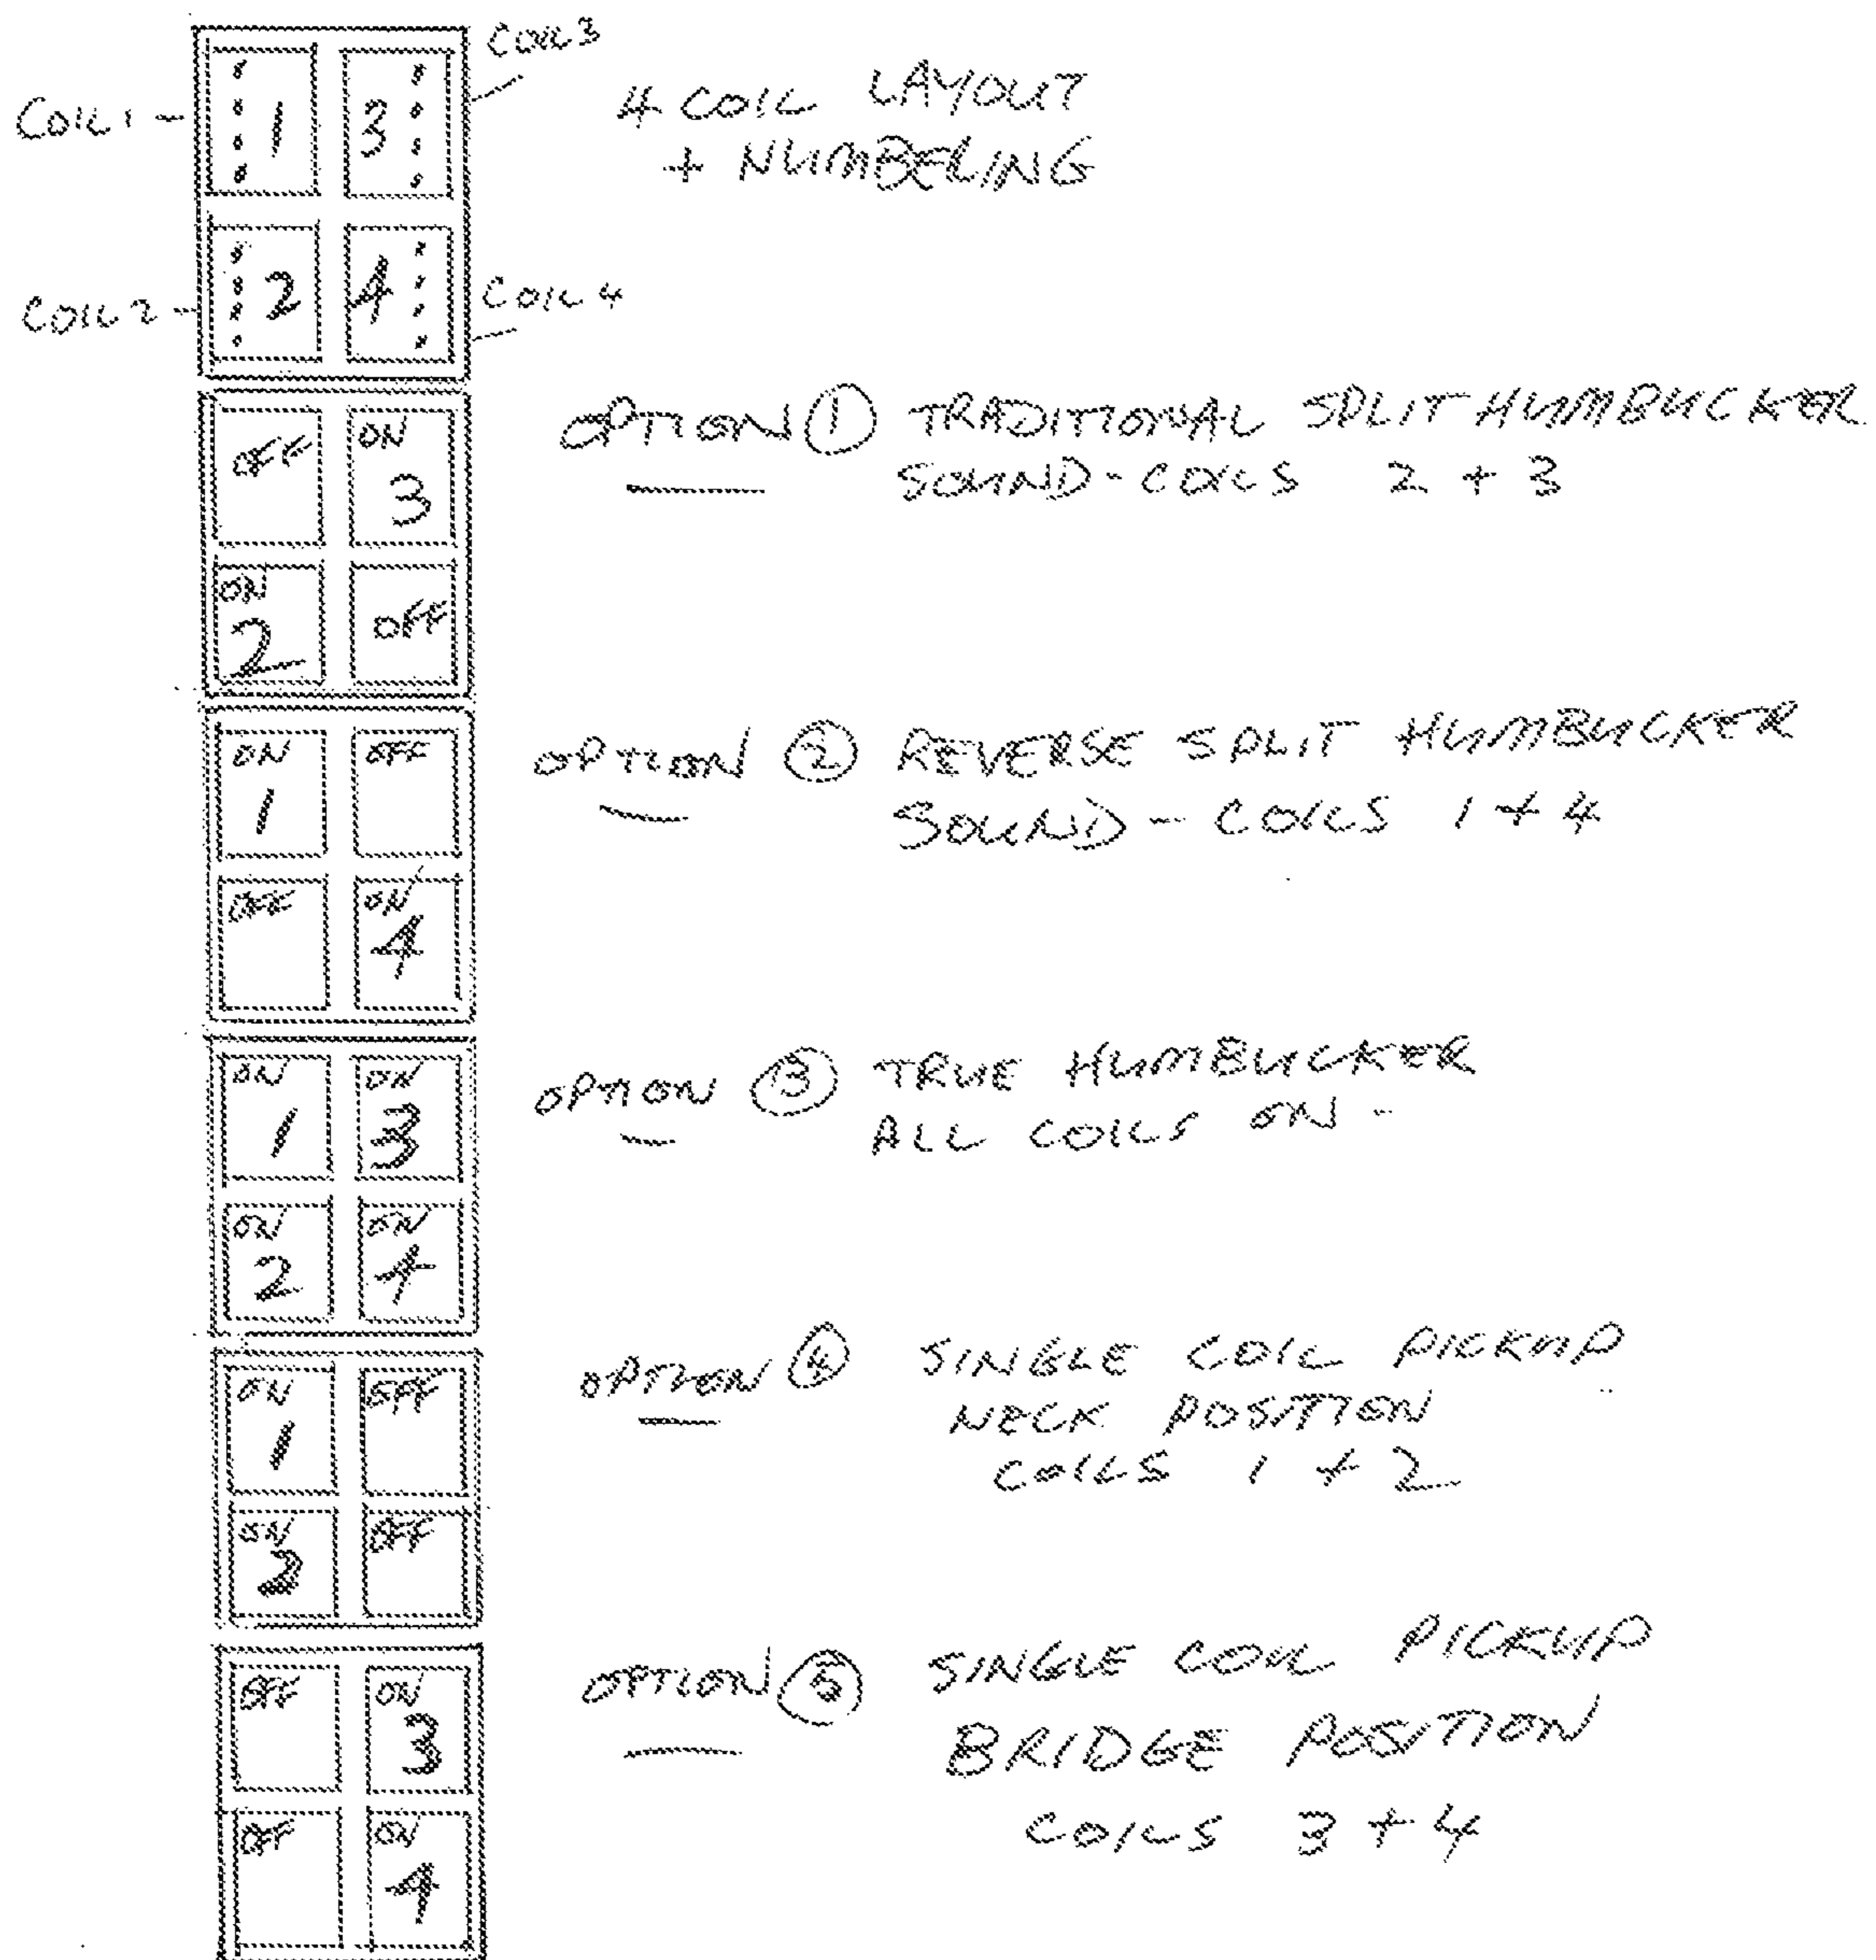 COIL 3
COIL 1
1 3
4 COIL LAYOUT
+ NUMBERING
2 4
COIL 2
COIL 4
OFF ON
3
OPTION 1 TRADITIONAL SPLIT HUMBUCKER
SOUND - COILS 2 + 3
ON
2 OFF
ON OFF
1
OPTION 2 REVERSE SPLIT HUMBUCKER
SOUND - COILS 1 + 4
OFF ON
4
ON ON
1 3
OPTION 3 TRUE HUMBUCKER
ALL COILS ON -
ON ON
2 4
ON OFF
1
OPTION 4 SINGLE COIL PICKUP
NECK POSITION
COILS 1 + 2
ON OFF
2
OFF ON
3
OPTION 5 SINGLE COIL PICKUP
BRIDGE POSITION
COILS 3 + 4
OFF ON
4